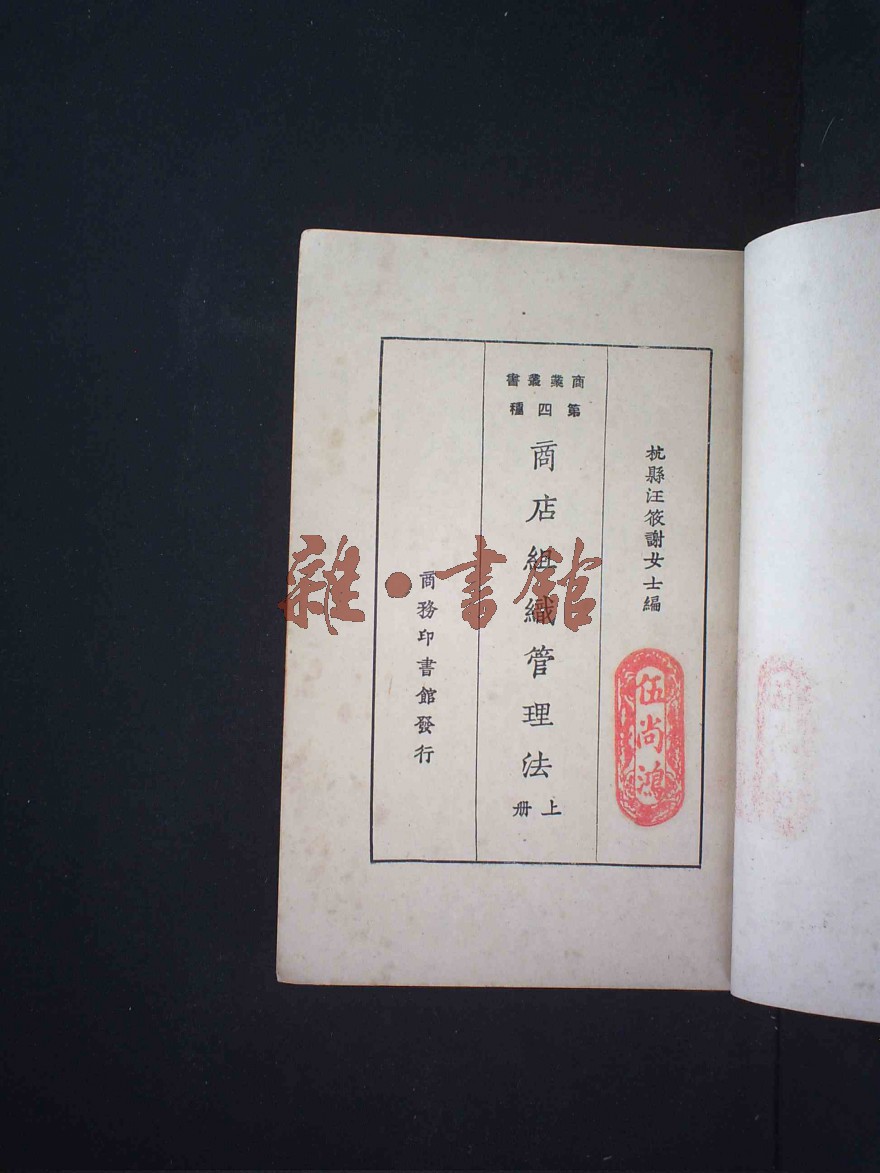 杭縣汪筱謝女士編
伍尚鴻
商業叢書
第四種
商店組織管理法
上册
商務印書館發行
雜·書館